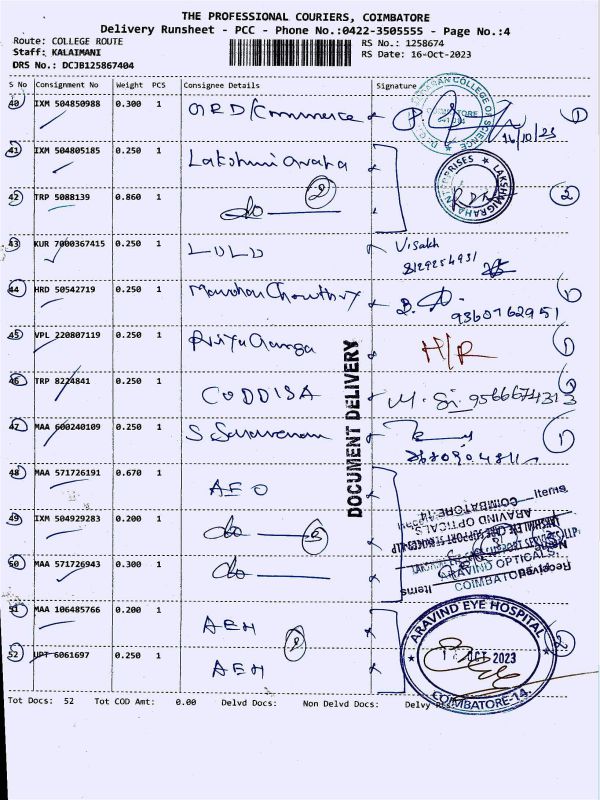 THE PROFESSIONAL COURIERS, COIMBATORE
Delivery Runsheet - PCC - Phone No.:0422-3505555 - Page No.:4
Route: COLLEGE ROUTE
RS No.: 1258674
Staff: KALAIMANI
RS Date: 16-Oct-2023
DRS No.: DCJB125867404
S No Consignment No Weight PCS Consignee Details Signature
40 IXM 504850988 0.300 1 GRD/Commerce
16/10/23
41 IXM 504805185 0.250 1
LAKSHMIGRAHA ENTERPRISES
42 TRP 5088139 0.860 1 do 2
2
43 KUR 7000367415 0.250 1 LULU Visakh
8129254931
44 HRD 50542719 0.250 1 Manohar Chowthry
9360762951
45 VPL 220807119 0.250 1 H/R
1
46 TRP 8224841 0.250 1 CODDISA M. 9566674313
47 MAA 600240109 0.250 1 S Saravanan
1
DOCUMENT DELIVERY
48 MAA 571726191 0.670 1 AEO
49 IXM 504929283 0.200 1 do
50 MAA 571726943 0.300 1 do
Items
COIMBATORE 14
ARAVIND OPTICALS
Received
ARAVIND OPTICALS
COIMBATORE
Items
51 MAA 106485766 0.200 1 AEH 2
52 UPT 6061697 0.250 1 AEH
2
ARAVIND EYE HOSPITAL
OCT 2023
COIMBATORE-14.
Tot Docs: 52 Tot COD Amt: 0.00 Delvd Docs: Non Delvd Docs: